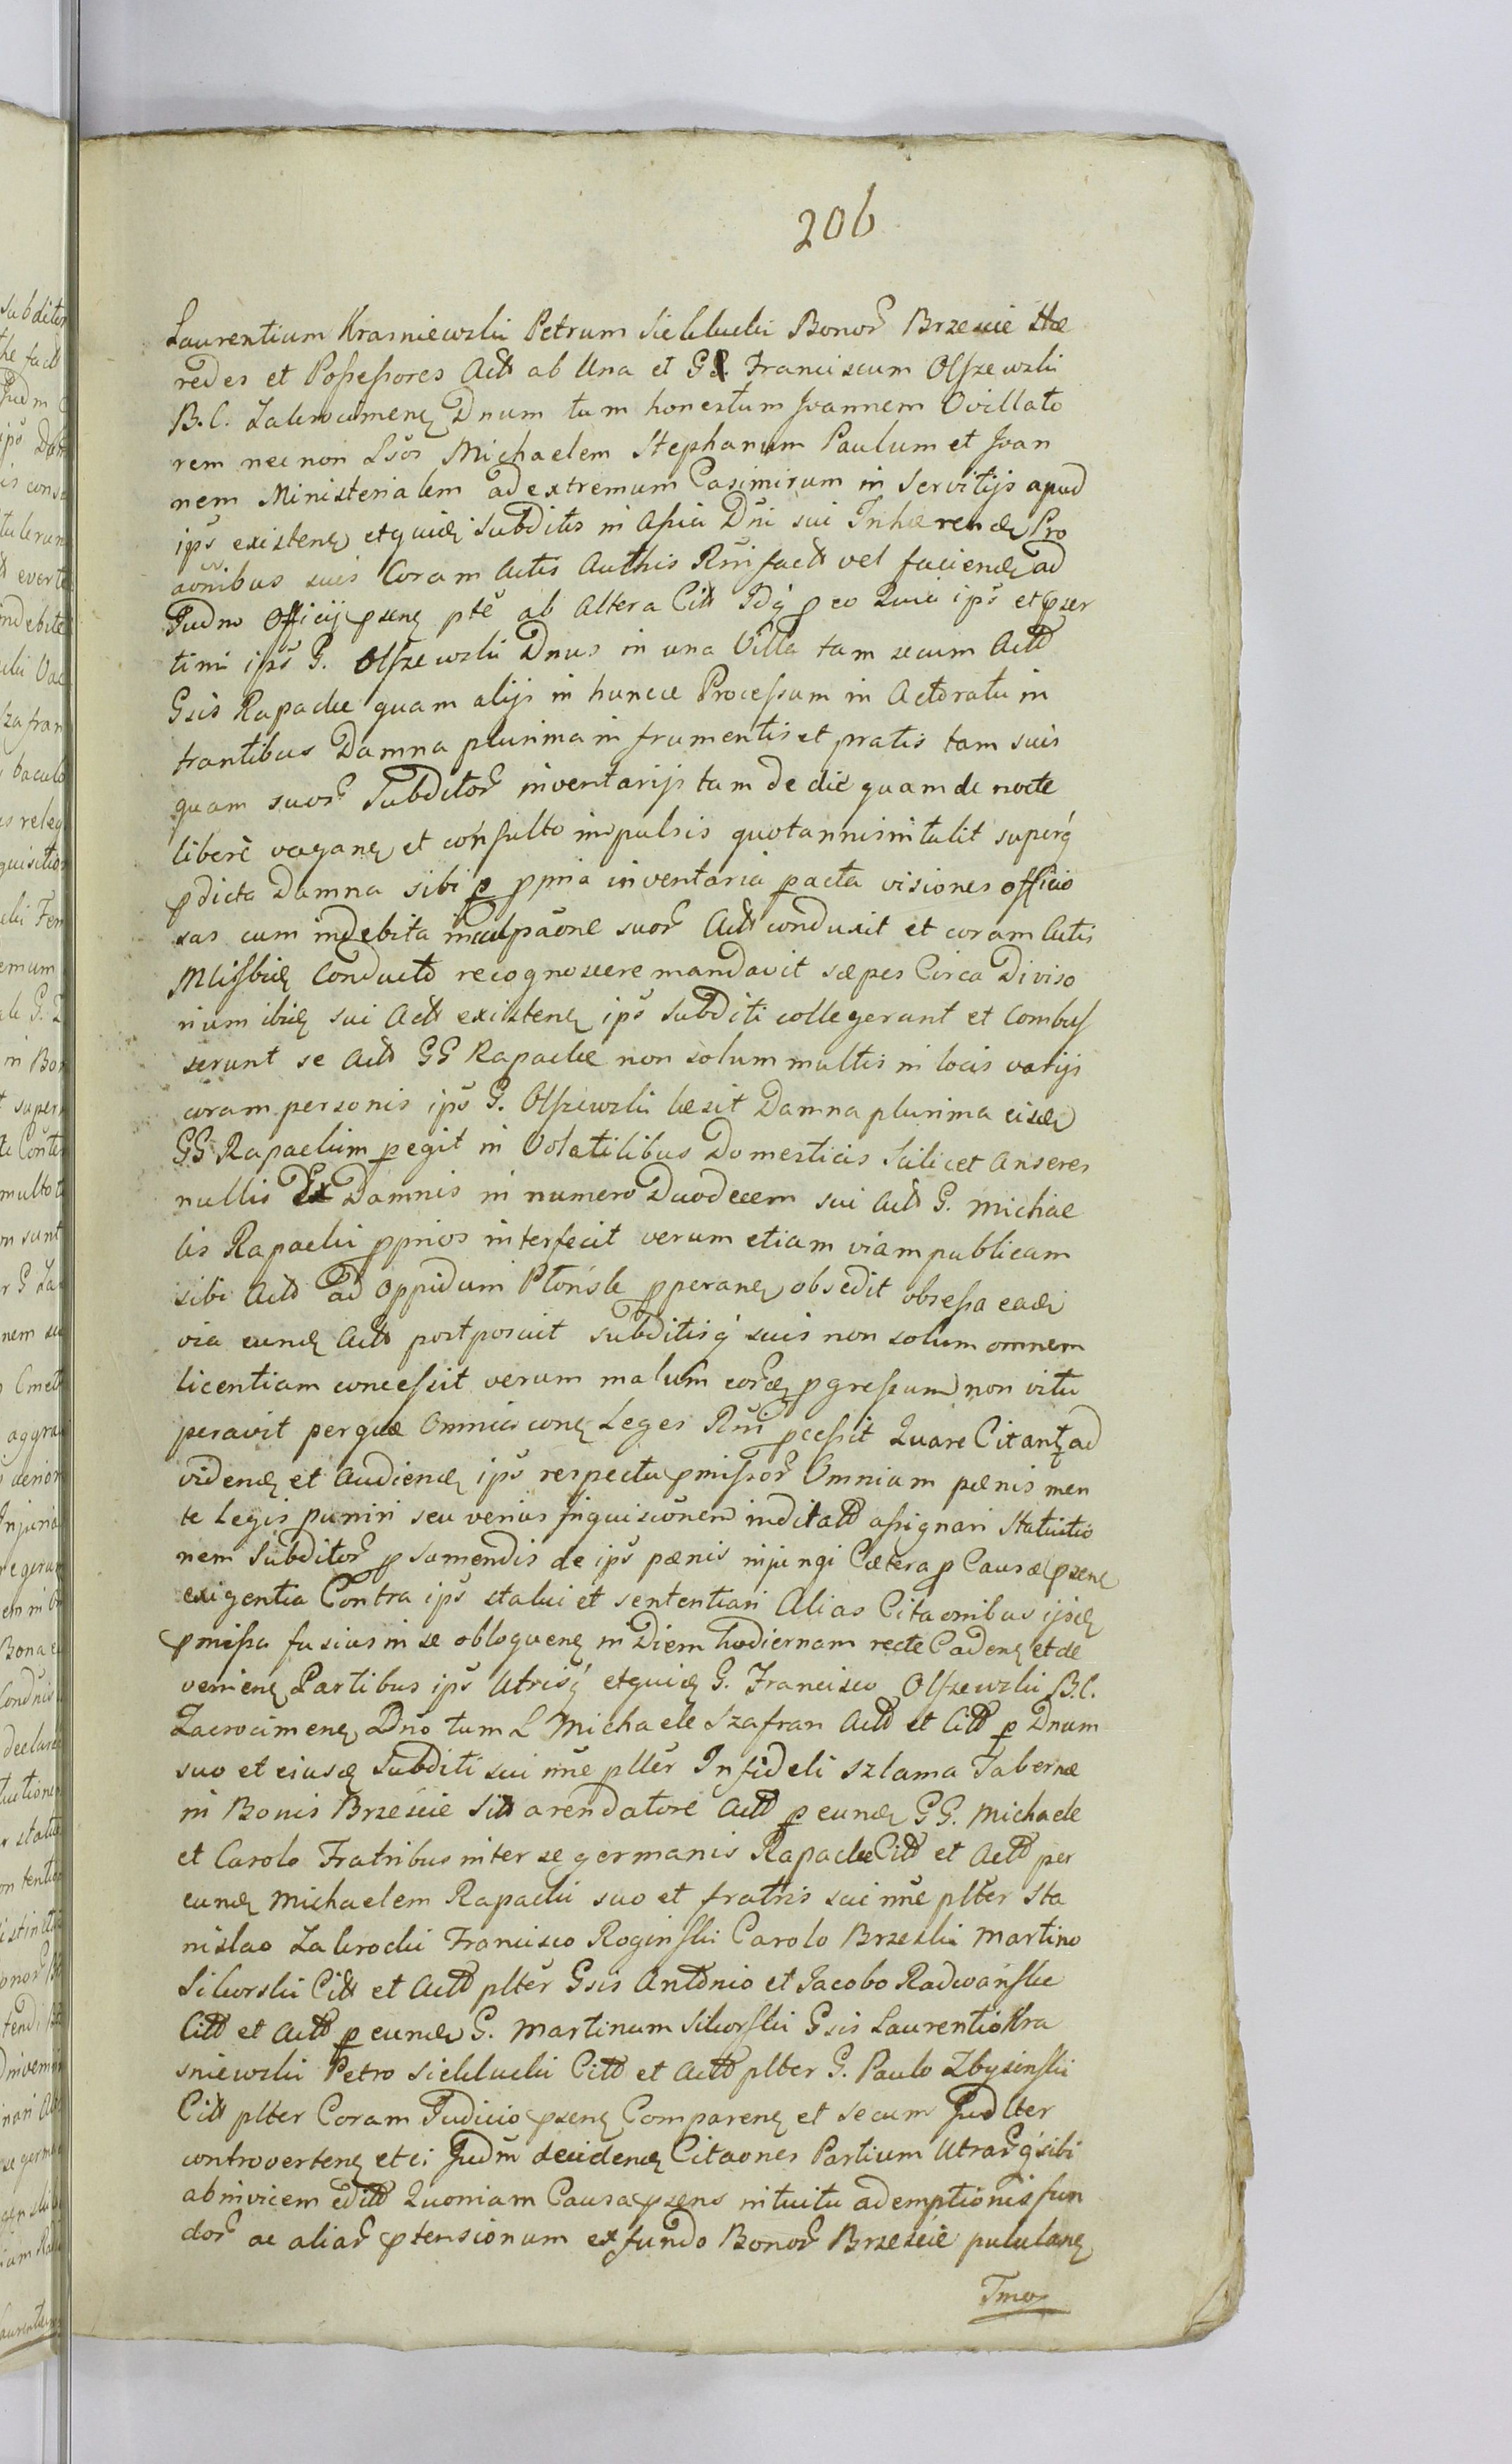 206
Laurentium Krasniewski Petrum Sieklucki Bonor Brzescie Hæ
redes et Possessores Actt ab Una et G Franciscum Olszewski
B. C. Zakrocimen Dnum tum honestum Joannem Ovillato
rem nec non Lsos Michaelem Stephanum Paulum et Joan
nem Ministerialem ad extremum Casimirum in Servitijs apud
ips existen etquid Subditos in Assia Dni sui Inhærend Pro
aonibus suis Coram Actis Authis Rni fact vel faciend ad
Judm Officij psens pte ab Altera Citt Idq p eo Quia ips et pser
tim ips G. Olszewski Dnus in una Villa tam secum Actt
Gsis Rapackie quam alijs in huncce Processum in Actoratu in
trantibus Damna plurima in frumentis et pratis tam suis
quam suor Subditor inventarijs tam de die quam de nocte
libere vagan et consulto impulsis quotannis intulit superq
pdicta Damna sibi p ppria inventaria pacta visiones officio
sas cum indebita inculpaone suor Actt conduxit et coram Actis
Conducto recognoscere mandavit sæpes Circa Diviso
rium ibid sui Actt existen ips Subditi collegerunt et Combus
serunt se Actt GG Rapackie non solum multis in locis varijs
coram personis ips G. Olszewski læsit Damna plurima eisd
GG Rapackim pegit in Volatilibus Domesticis Scilicet Anseres
nullis Ex Damnis in numero Duodecem sui Actt G. Michae
lis Rapacki pprios interfecit verum etiam viam publicam
sibi Actt ad Oppidum Płońsk pperan obsedit obsessa ead
via eund Actt postposuit Subditisq suis non solum omnem
licentiam concessit verum malum eord pgressum non vitu
peravit perquæ Omnia con Leges Rni pcessit Quare Citant ad
vidend et Audiend ips respectu pmissor Omnium pænis men
te Legis puniri seu verius Inquisitionem inditatt assignari Statuitio
nem Subditor p sumendis de ips pænis injungi Cætera p Causæ psen
exigentia Contra ips statui et sententiari Alias Citaonibus ijsd
pmissa fusius in se obloquen in Diem hodiernam recte Caden et de
venien Partibus ips Utrisq etquid G. Francisco Olszewski B. C.
Zacrocimen Dno tum L Michaele Szafran Actt et Citt p Dnum
suo et eiusd Subditi sui nne pltter Infideli Szlama Tabernæ
in Bonis Brzescie Sitt arendatore Actt p eund GG. Michaele
et Carolo Fratribus inter se germanis Rapackie Citt et Actt per
eund Michaelem Rapacki suo et fratris sui nne pltter Sta
nislao Zakrocki Francisco Roginski Carolo Brzeski Martino
Sikorski Citt et Actt pltter Gsis Antonio et Jacobo Radwańskie
Citt et Actt p eund G. Martinum Sikorski Gsis Laurentio Kra
sniewski Petro Sieklucki Citt et Actt pltter G. Paulo Zbyszinski
Citt pltter Coram Judicio psen Comparen et secum Judlter
controverten et ei Judm deciden Citaones Partium Utrarq sibi
abinvicem editt Quoniam Causa psens intuitu ademptionis fun
dor ac aliar ptensionum ex fundo Bonor Brzescie pululan
Tmo